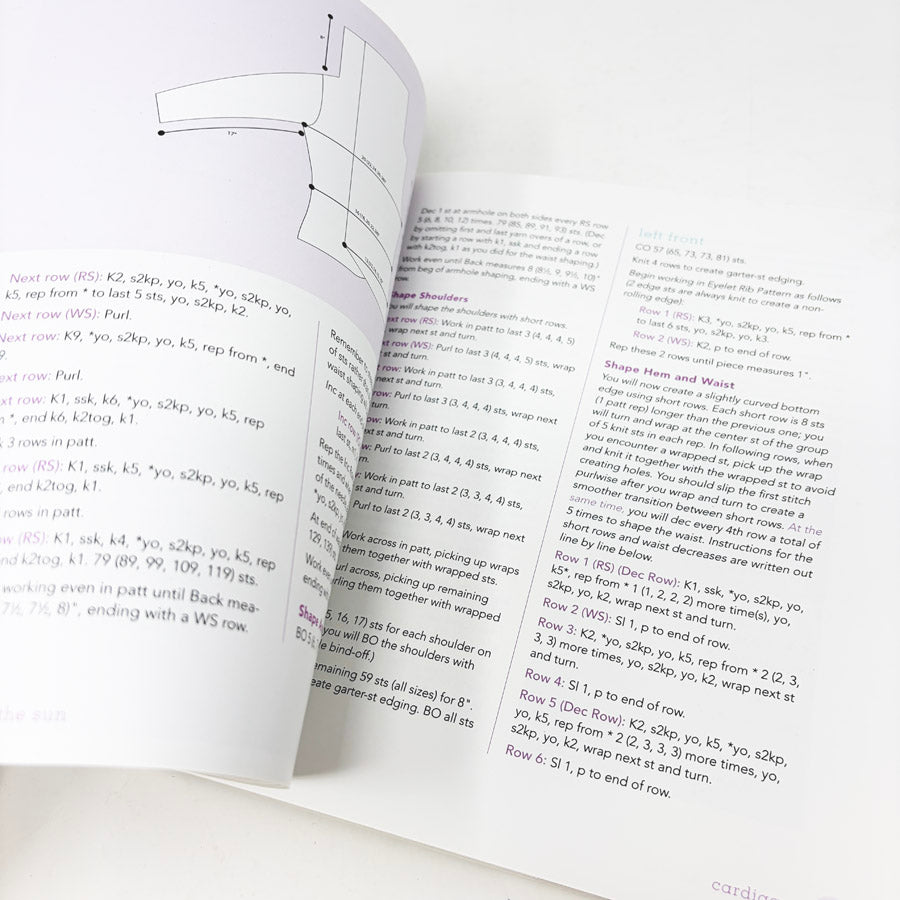 8"
17"
Next row (RS): K2, s2kp, yo, k5, *yo, s2kp, yo,
k5, rep from * to last 5 sts, yo, s2kp, k2.
Next row (WS): Purl.
Next row: K9, *yo, s2kp, yo, k5, rep from *, end
9.
ext row: Purl.
xt row: K1, ssk, k6, *yo, s2kp, yo, k5, rep
*, end k6, k2tog, k1.
3 rows in patt.
row (RS): K1, ssk, k5, *yo, s2kp, yo, k5, rep
, end k2tog, k1.
rows in patt.
w (RS): K1, ssk, k4, *yo, s2kp, yo, k5, rep
nd k2tog, k1. 79 (89, 99, 109, 119) sts.
working even in patt until Back mea-
7½, 7½, 8)", ending with a WS row.
the sun
Remember
of sts
waist shaping
Inc at each
Inc row
Rep the
times
of the
At end of
Work
ending
Shape
BO 5
Dec 1 st at armhole on both sides every RS row
5 (6, 8, 10, 12) times. 79 (85, 89, 91, 93) sts. (Dec
by omitting first and last yarn overs of a row, or
by starting a row with k1, ssk and ending a row
with k2tog, k1 as you did for the waist shaping.)
Work even until Back measures 8 (8½, 9, 9½, 10)"
from beg of armhole shaping, ending with a WS
row.
Shape Shoulders
You will shape the shoulders with short rows.
ext row (RS): Work in patt to last 3 (4, 4, 4, 5)
wrap next st and turn.
xt row (WS): Purl to last 3 (4, 4, 4, 5) sts, wrap
st and turn.
row: Work in patt to last 3 (3, 4, 4, 4) sts,
next st and turn.
row: Purl to last 3 (3, 4, 4, 4) sts, wrap next
turn.
ow: Work in patt to last 2 (3, 4, 4, 4) sts,
ext st and turn.
w: Purl to last 2 (3, 4, 4, 4) sts, wrap next
turn.
Work in patt to last 2 (3, 3, 4, 4) sts,
st and turn.
Purl to last 2 (3, 3, 4, 4) sts, wrap next
turn.
Work across in patt, picking up wraps
them together with wrapped sts.
url across, picking up remaining
rling them together with wrapped
5, 16, 17) sts for each shoulder on
you will BO the shoulders with
le bind-off.)
emaining 59 sts (all sizes) for 8".
eate garter-st edging. BO all sts
left front
CO 57 (65, 73, 73, 81) sts.
Knit 4 rows to create garter-st edging.
Begin working in Eyelet Rib Pattern as follows
(2 edge sts are always knit to create a non-
rolling edge):
Row 1 (RS): K3, *yo, s2kp, yo, k5, rep from *
to last 6 sts, yo, s2kp, yo, k3.
Row 2 (WS): K2, p to end of row.
Rep these 2 rows until piece measures 1".
Shape Hem and Waist
You will now create a slightly curved bottom
edge using short rows. Each short row is 8 sts
(1 patt rep) longer than the previous one; you
will turn and wrap at the center st of the group
of 5 knit sts in each rep. In following rows, when
you encounter a wrapped st, pick up the wrap
and knit it together with the wrapped st to avoid
creating holes. You should slip the first stitch
purlwise after you wrap and turn to create a
smoother transition between short rows. At the
same time, you will dec every 4th row a total of
5 times to shape the waist. Instructions for the
short rows and waist decreases are written out
line by line below.
Row 1 (RS) (Dec Row): K1, ssk, *yo, s2kp, yo,
k5*, rep from * 1 (1, 2, 2, 2) more time(s), yo,
s2kp, yo, k2, wrap next st and turn.
Row 2 (WS): Sl 1, p to end of row.
Row 3: K2, *yo, s2kp, yo, k5, rep from * 2 (2, 3,
3, 3) more times, yo, s2kp, yo, k2, wrap next st
and turn.
Row 4: Sl 1, p to end of row.
Row 5 (Dec Row): K2, s2kp, yo, k5, *yo, s2kp,
yo, k5, rep from * 2 (2, 3, 3, 3) more times, yo,
s2kp, yo, k2, wrap next st and turn.
Row 6: Sl 1, p to end of row.
cardig